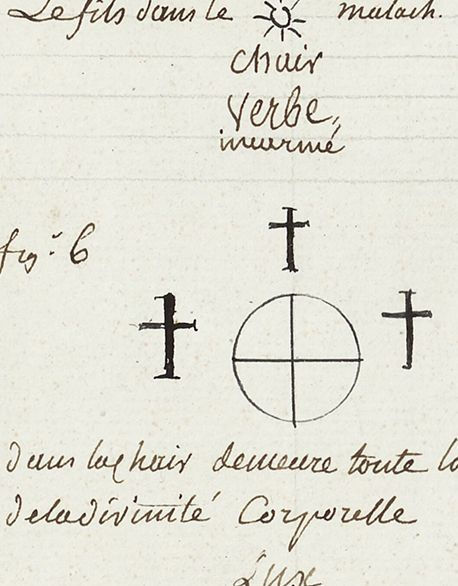 Le fils dans le malach.
chair
verbe,,
incarné
fig: 6
dans la chair demeure toute la
de la divinité Corporelle
Lux